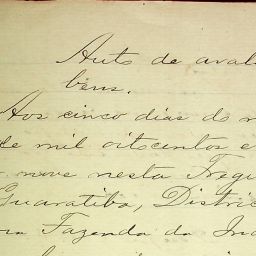 Auto de aval
bens.
Aos cinco dias do m
de mil oitocentos e
nove nesta Freg
Guaratiba, Distric
Fazenda do Ind